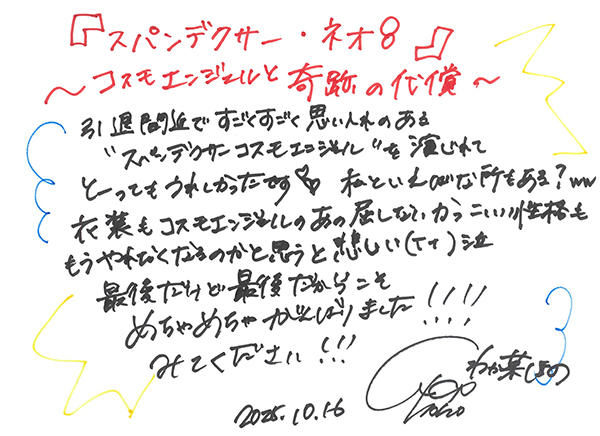 『スパンデクサー・ネオ8』
〜コスモエンジェルと奇跡の代償〜
引退間近ですごくすごく思い入れのある
"スパンデクサーコスモエンジェル"を演じれて
とーってもうれしかったです♡ 私といえばな所もある？ww
衣装もコスモエンジェルのあの屈しないかっこいい性格も
もうやれなくなるのかと思うと悲しい(TT)泣
最後だけど最後だからこそ
めちゃめちゃがんばりました!!!!
みてください!!!
わか菜ほの
2025.10.16